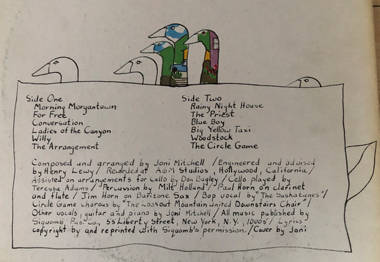 Side One
Morning Morgantown
For Free
Conversation
Ladies of the Canyon
Willy
The Arrangement
Side Two
Rainy Night House
The Priest
Blue Boy
Big Yellow Taxi
Woodstock
The Circle Game
Composed and arranged by Joni Mitchell / Engineered and advised
by Henry Lewy / Recorded at A&M Studios, Hollywood, California /
Assisted on arrangements for Cello by Don Bagley / Cello played by
Teressa Adams / Percussion by Milt Holland / Paul Horn on clarinet
and flute / Jim Horn on Baritone Sax / Bop vocal by "The Saskatunes" /
Circle Game chorus by "The Lookout Mountain United Downstairs Choir" /
Other vocals, guitar and piano by Joni Mitchell / All music published by
Siquomb, 55 Liberty Street, New York, N.Y. 10005 / Lyrics
copyright by and reprinted with Siquomb's permission. / Cover by Joni